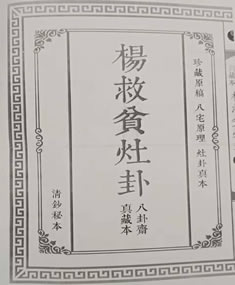 珍藏原稿 八宅原理 灶卦真本
楊救貧灶卦
八卦齋
真藏本
清鈔秘本